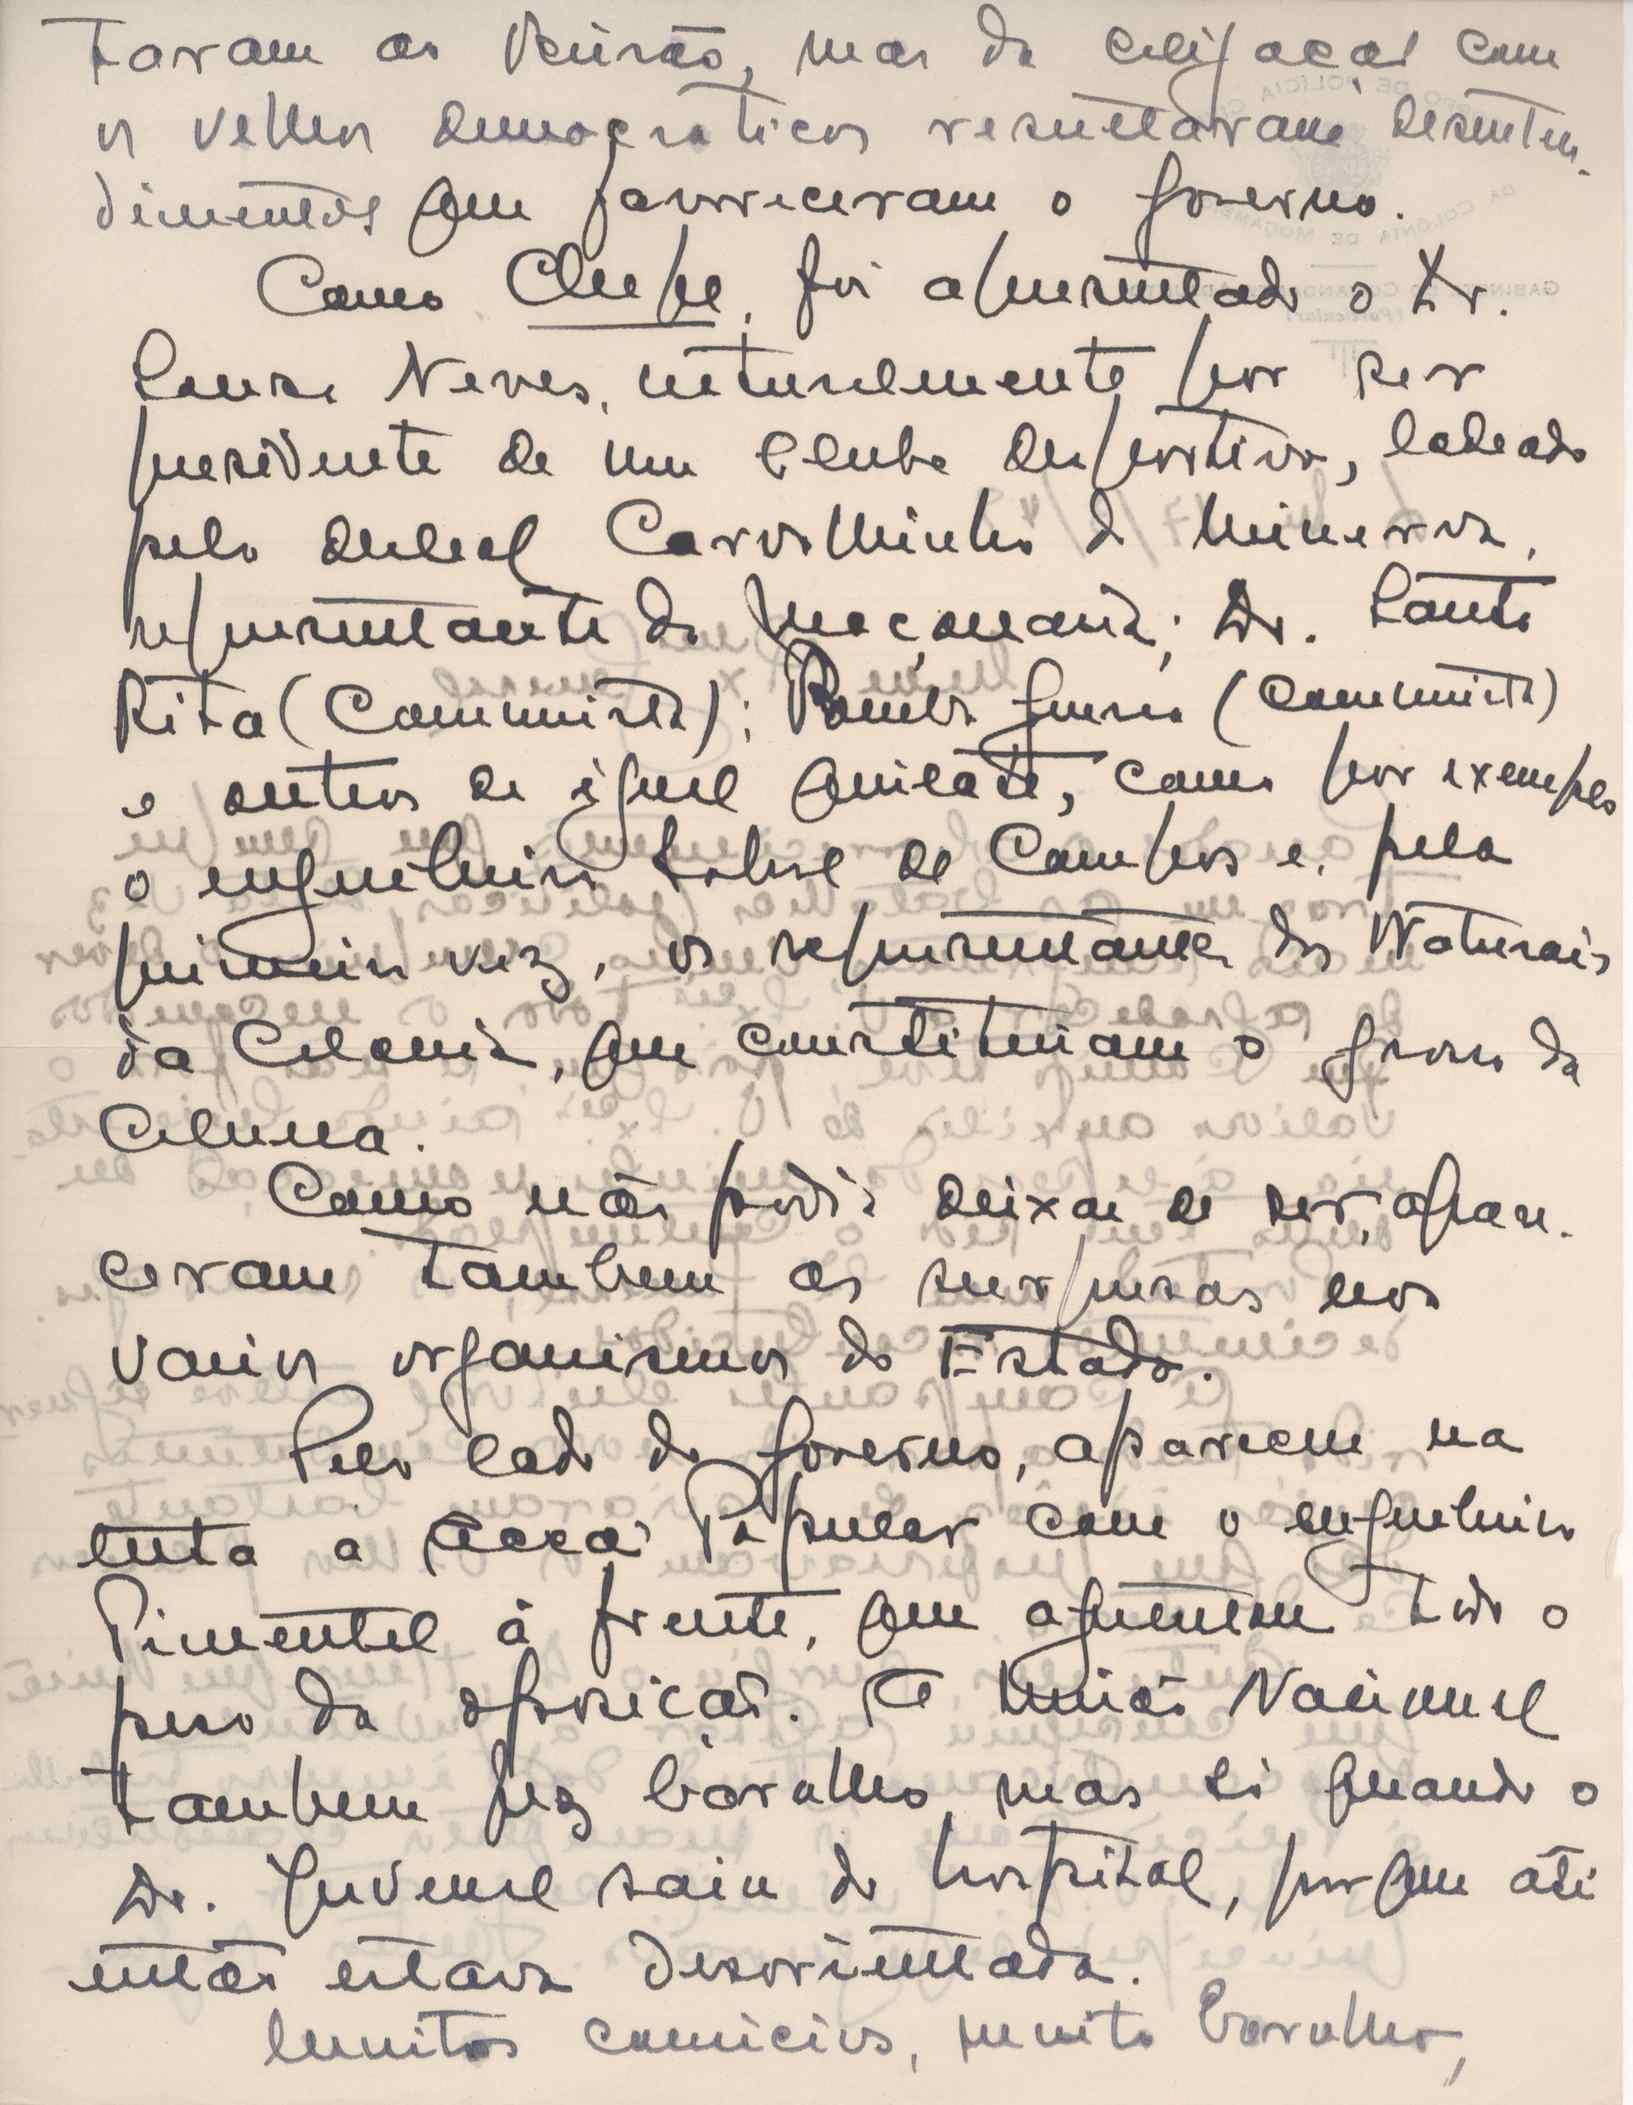 taram as eleições, mas da coligação com
os velhos democraticos resultaram desinten-
dimentos que favoreceram o governo.
Como Chefe, foi apresentado o Dr.
Sousa Neves, naturalmente por ser
presidente de um clube desportivo, ladeado
pelo Carvalhinho da Minerva,
representante da maçonaria; Dr. Santa
Rita (Communista); Pomba Guerra (Communista)
e outros de igual quilate, como por exemplo
o engenheiro Sobral de Campos e, pela
primeira vez, os representantes dos Naturais
da Colonia, que constituiam o grosso da
coluna.
Como não podia deixar de ser, apare-
ceram tambem as surpresas nos
varios organismos do Estado.
Pelo lado do Governo, aparecem na
luta a Acção Popular com o engenheiro
Pimentel á frente, que aguentou todo o
peso da oposição. A União Nacional
tambem fez barulho, mas só quando o
Dr. Juvenal saiu do hospital, porque até
então estava desorientada.
Muitos comicios, muito barulho,